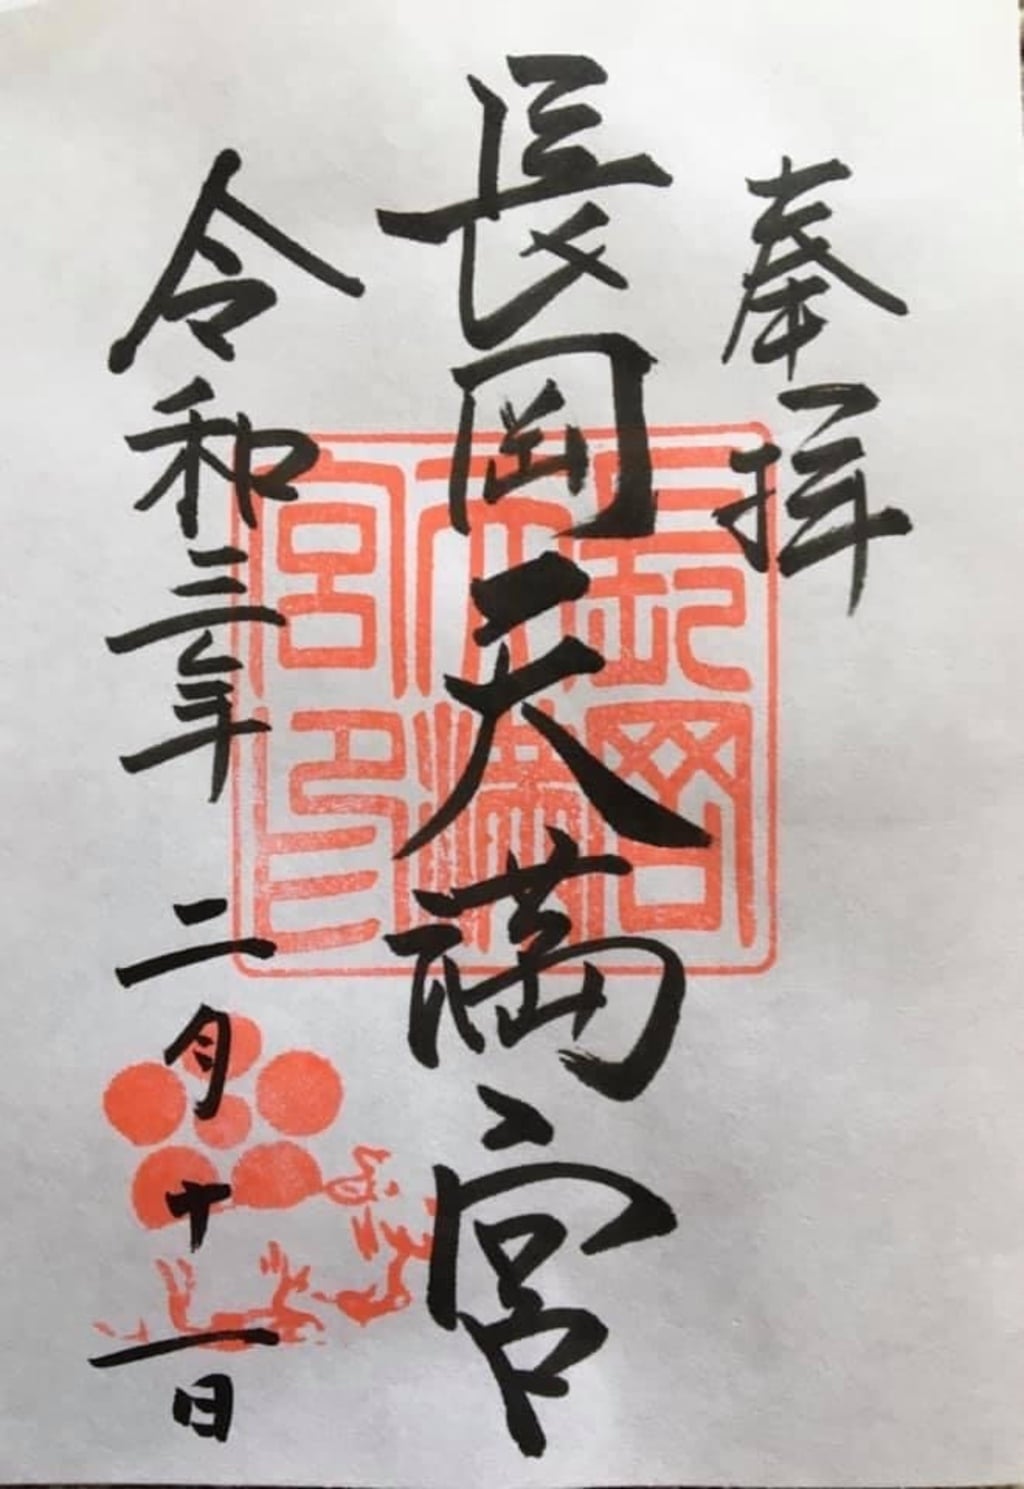 奉拝
長岡天満宮
令和三年二月十一日
長岡
天満
宮印